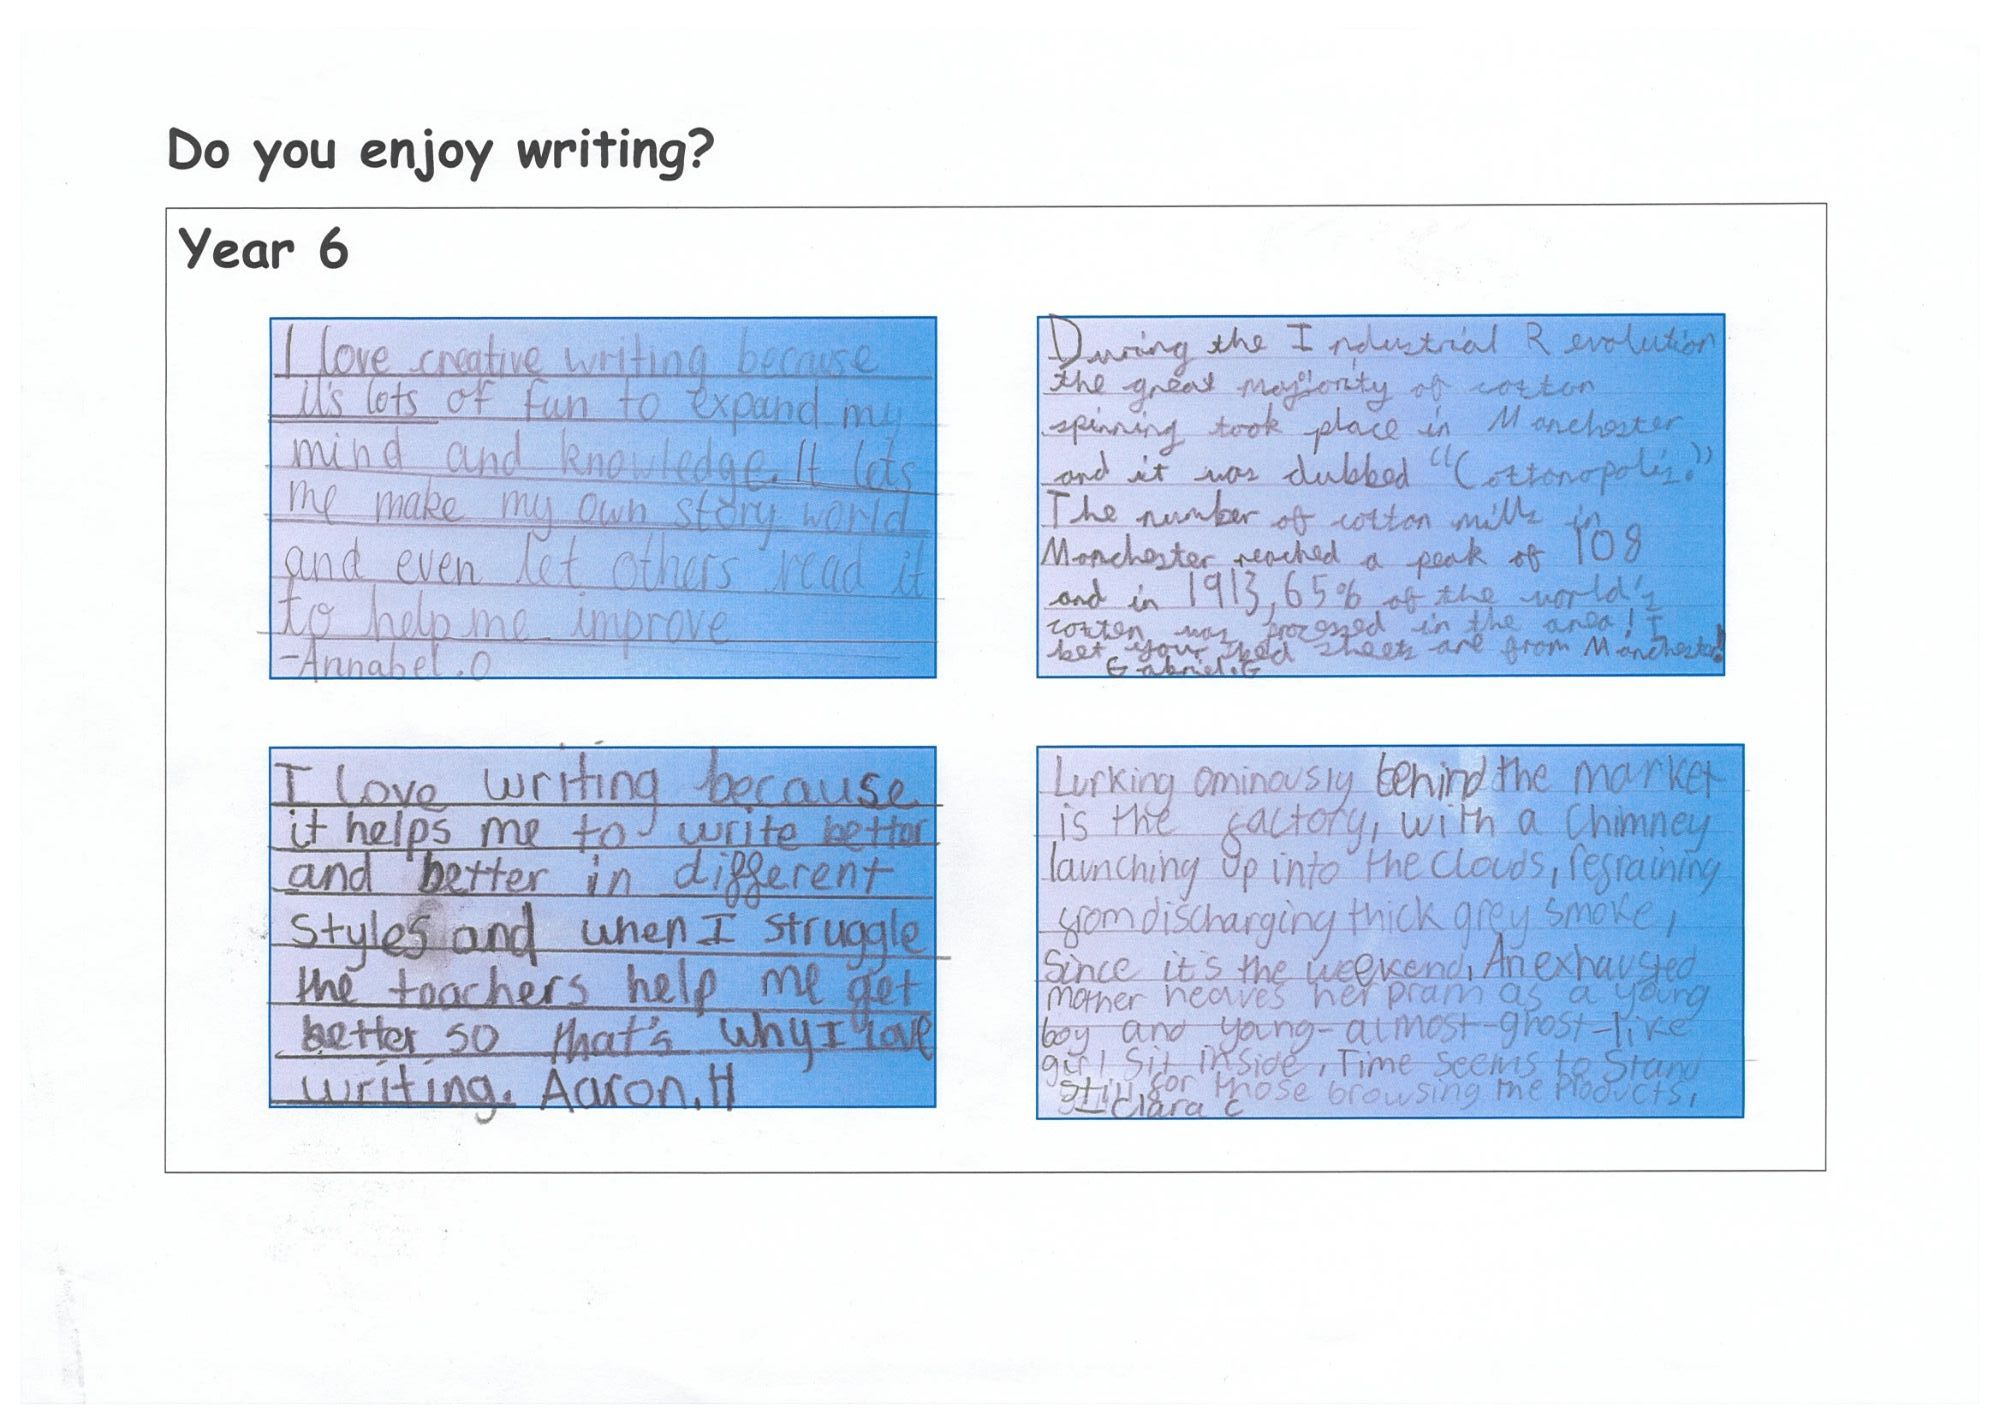 Do you enjoy writing?
Year 6
I love creative writing because
it's lots of fun to expand my
mind and knowledge. It lets
me make my own story world
and even let others read it
to help me improve
-Annabel.O
During the Industrial Revolution
the great majority of cotton
spinning took place in Manchester
and it was dubbed "Cottonopolis."
The number of cotton mills in
Manchester reached a peak of 108
and in 1913, 65% of the world's
cotton was processed in the area! I
bet your bed sheets are from Manchester!
Gabriel.G
I love writing because
it helps me to write better
and better in different
styles and when I struggle
the teachers help me get
better so that's why I love
writing. Aaron.H
Lurking ominously behind the market
is the factory, with a Chimney
launching up into the clouds, refraining
from discharging thick grey smoke,
Since it's the weekend, An exhausted
mother heaves her pram as a young
boy and young-almost-ghost-like
girl sit inside, Time seems to Stand
still for those browsing the Products,
- Clara C